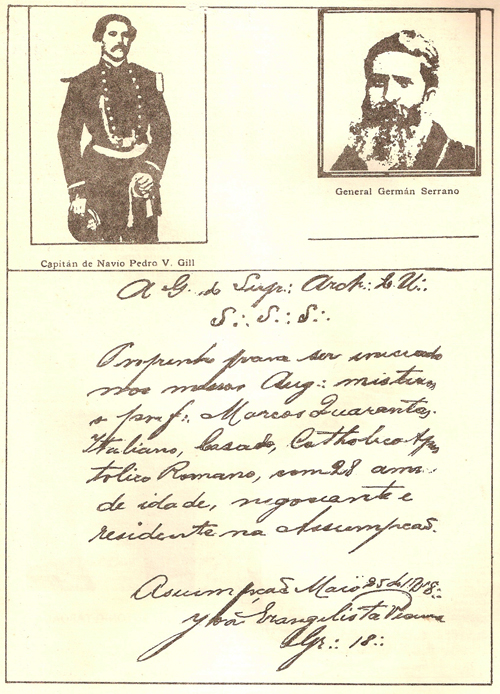 General Germán Serrano
Capitán de Navío Pedro V. Gill
A G∴ do Sup∴ Arch∴ do U∴
S∴ S∴ S∴
Proponho para ser iniciado
nos nossos Aug∴ misterios
o prof∴ Marcos Quaranta,
Italiano, Casado, Catholico Apos
tolico Romano, com 28 annos
de idade, negociante e
residente na Assumpcaõ.
Assumpcaõ Maio 25 de
Evangelista
Gr∴ 18∴